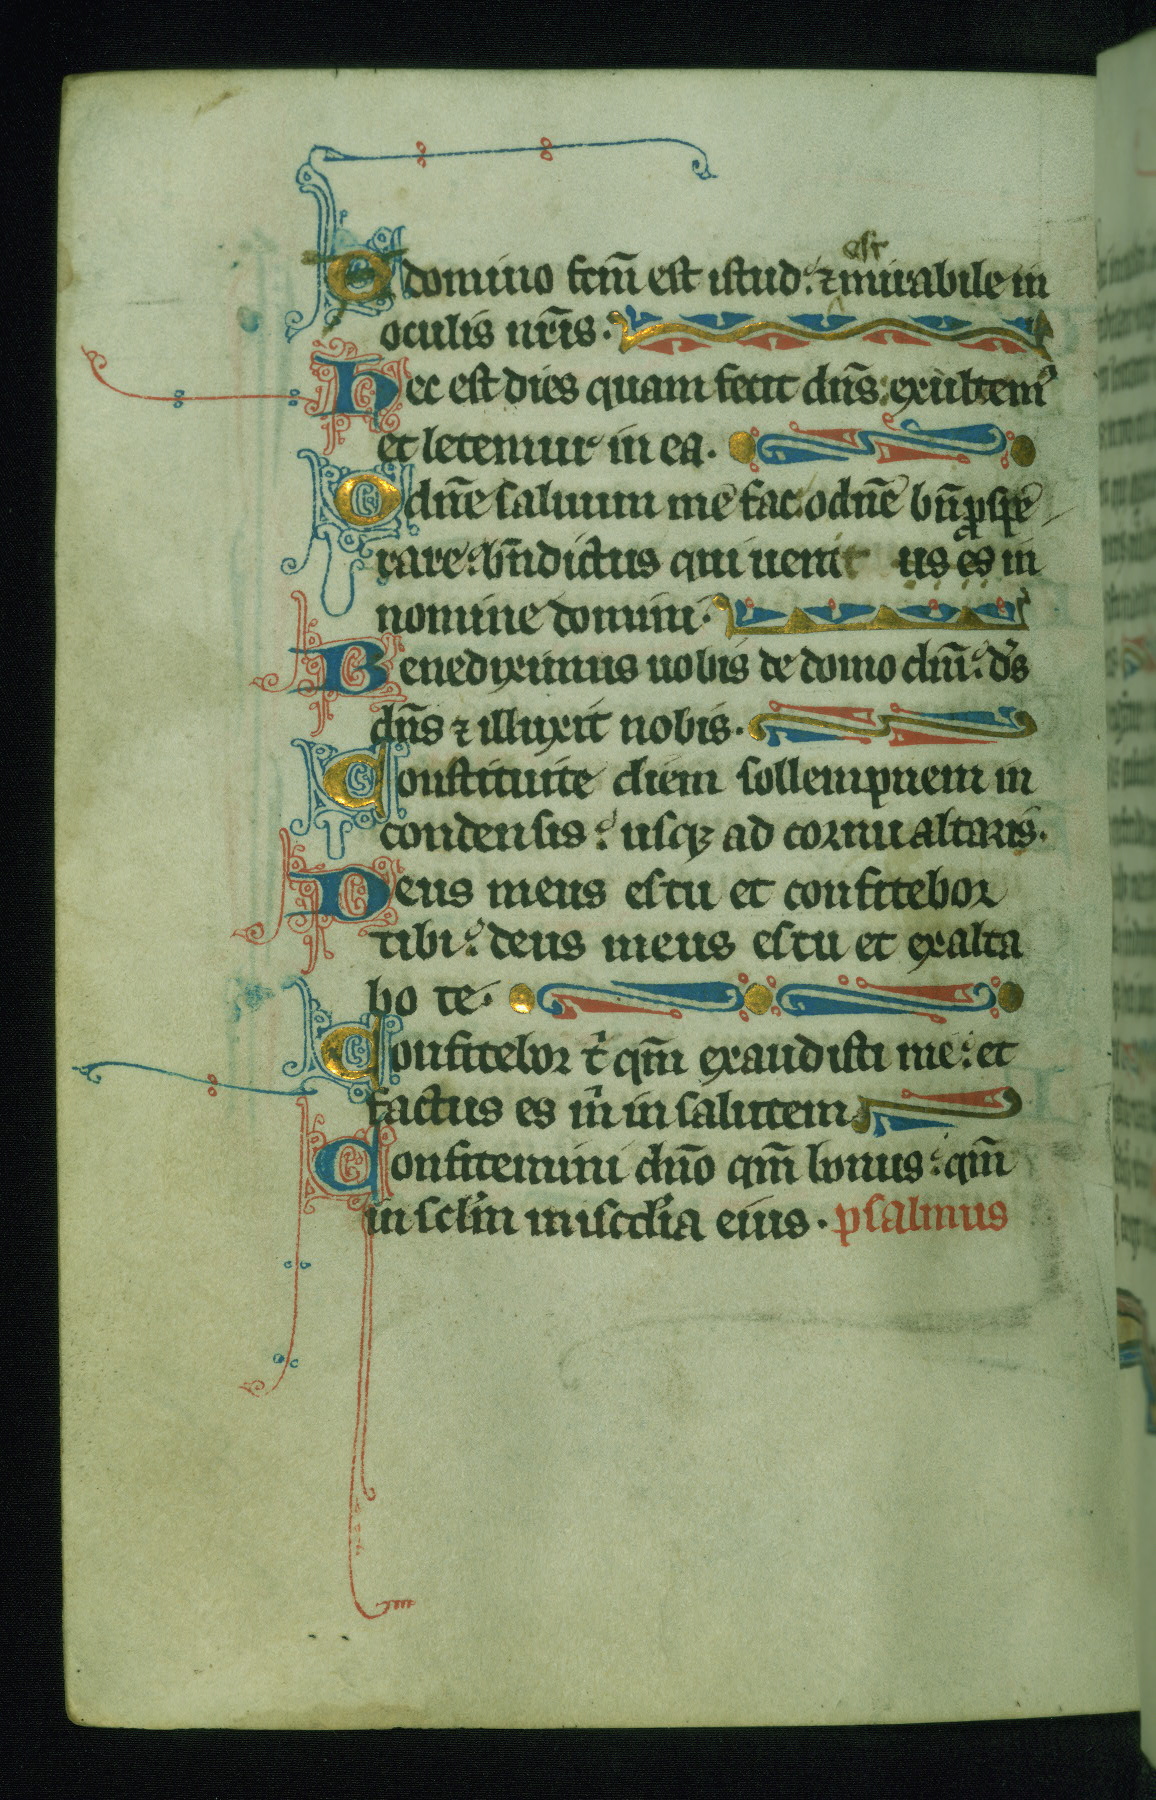 A domino fcm̄ est istud. ⁊ mirabile in
est
oculis nr̄is.
Hec est dies quam fecit dn̄s: exultem⁹
et letemur in ea.
O dn̄e saluum me fac o dn̄e bn̄ prospe
rare: bn̄dictus qui uenit us es in
nomine domini.
Benediximus uobis de domo dn̄i: d̄s
dn̄s ⁊ illuxit nobis.
Constituite diem sollempnem in
condensis: usqꝫ ad cornu altaris.
Deus meus es tu et confitebor
tibi: deus meus es tu et exalta
bo te.
Confitebor t̄ qm̄ exaudisti me: et
factus es m̄ in salutem
Confitemini dn̄o qm̄ bonus: qm̄
in sclm̄ miscdia eius. psalmus